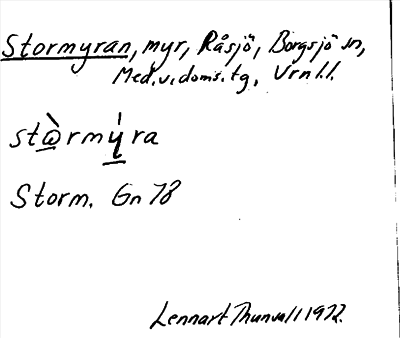 Stormyran, myr, Råsjö, Borgsjö sn,
Med.v.doms.tg, Vrnl.l.
stὼrmý̱ra
Storm. Gn 78
Lennart Thunvall 1972.